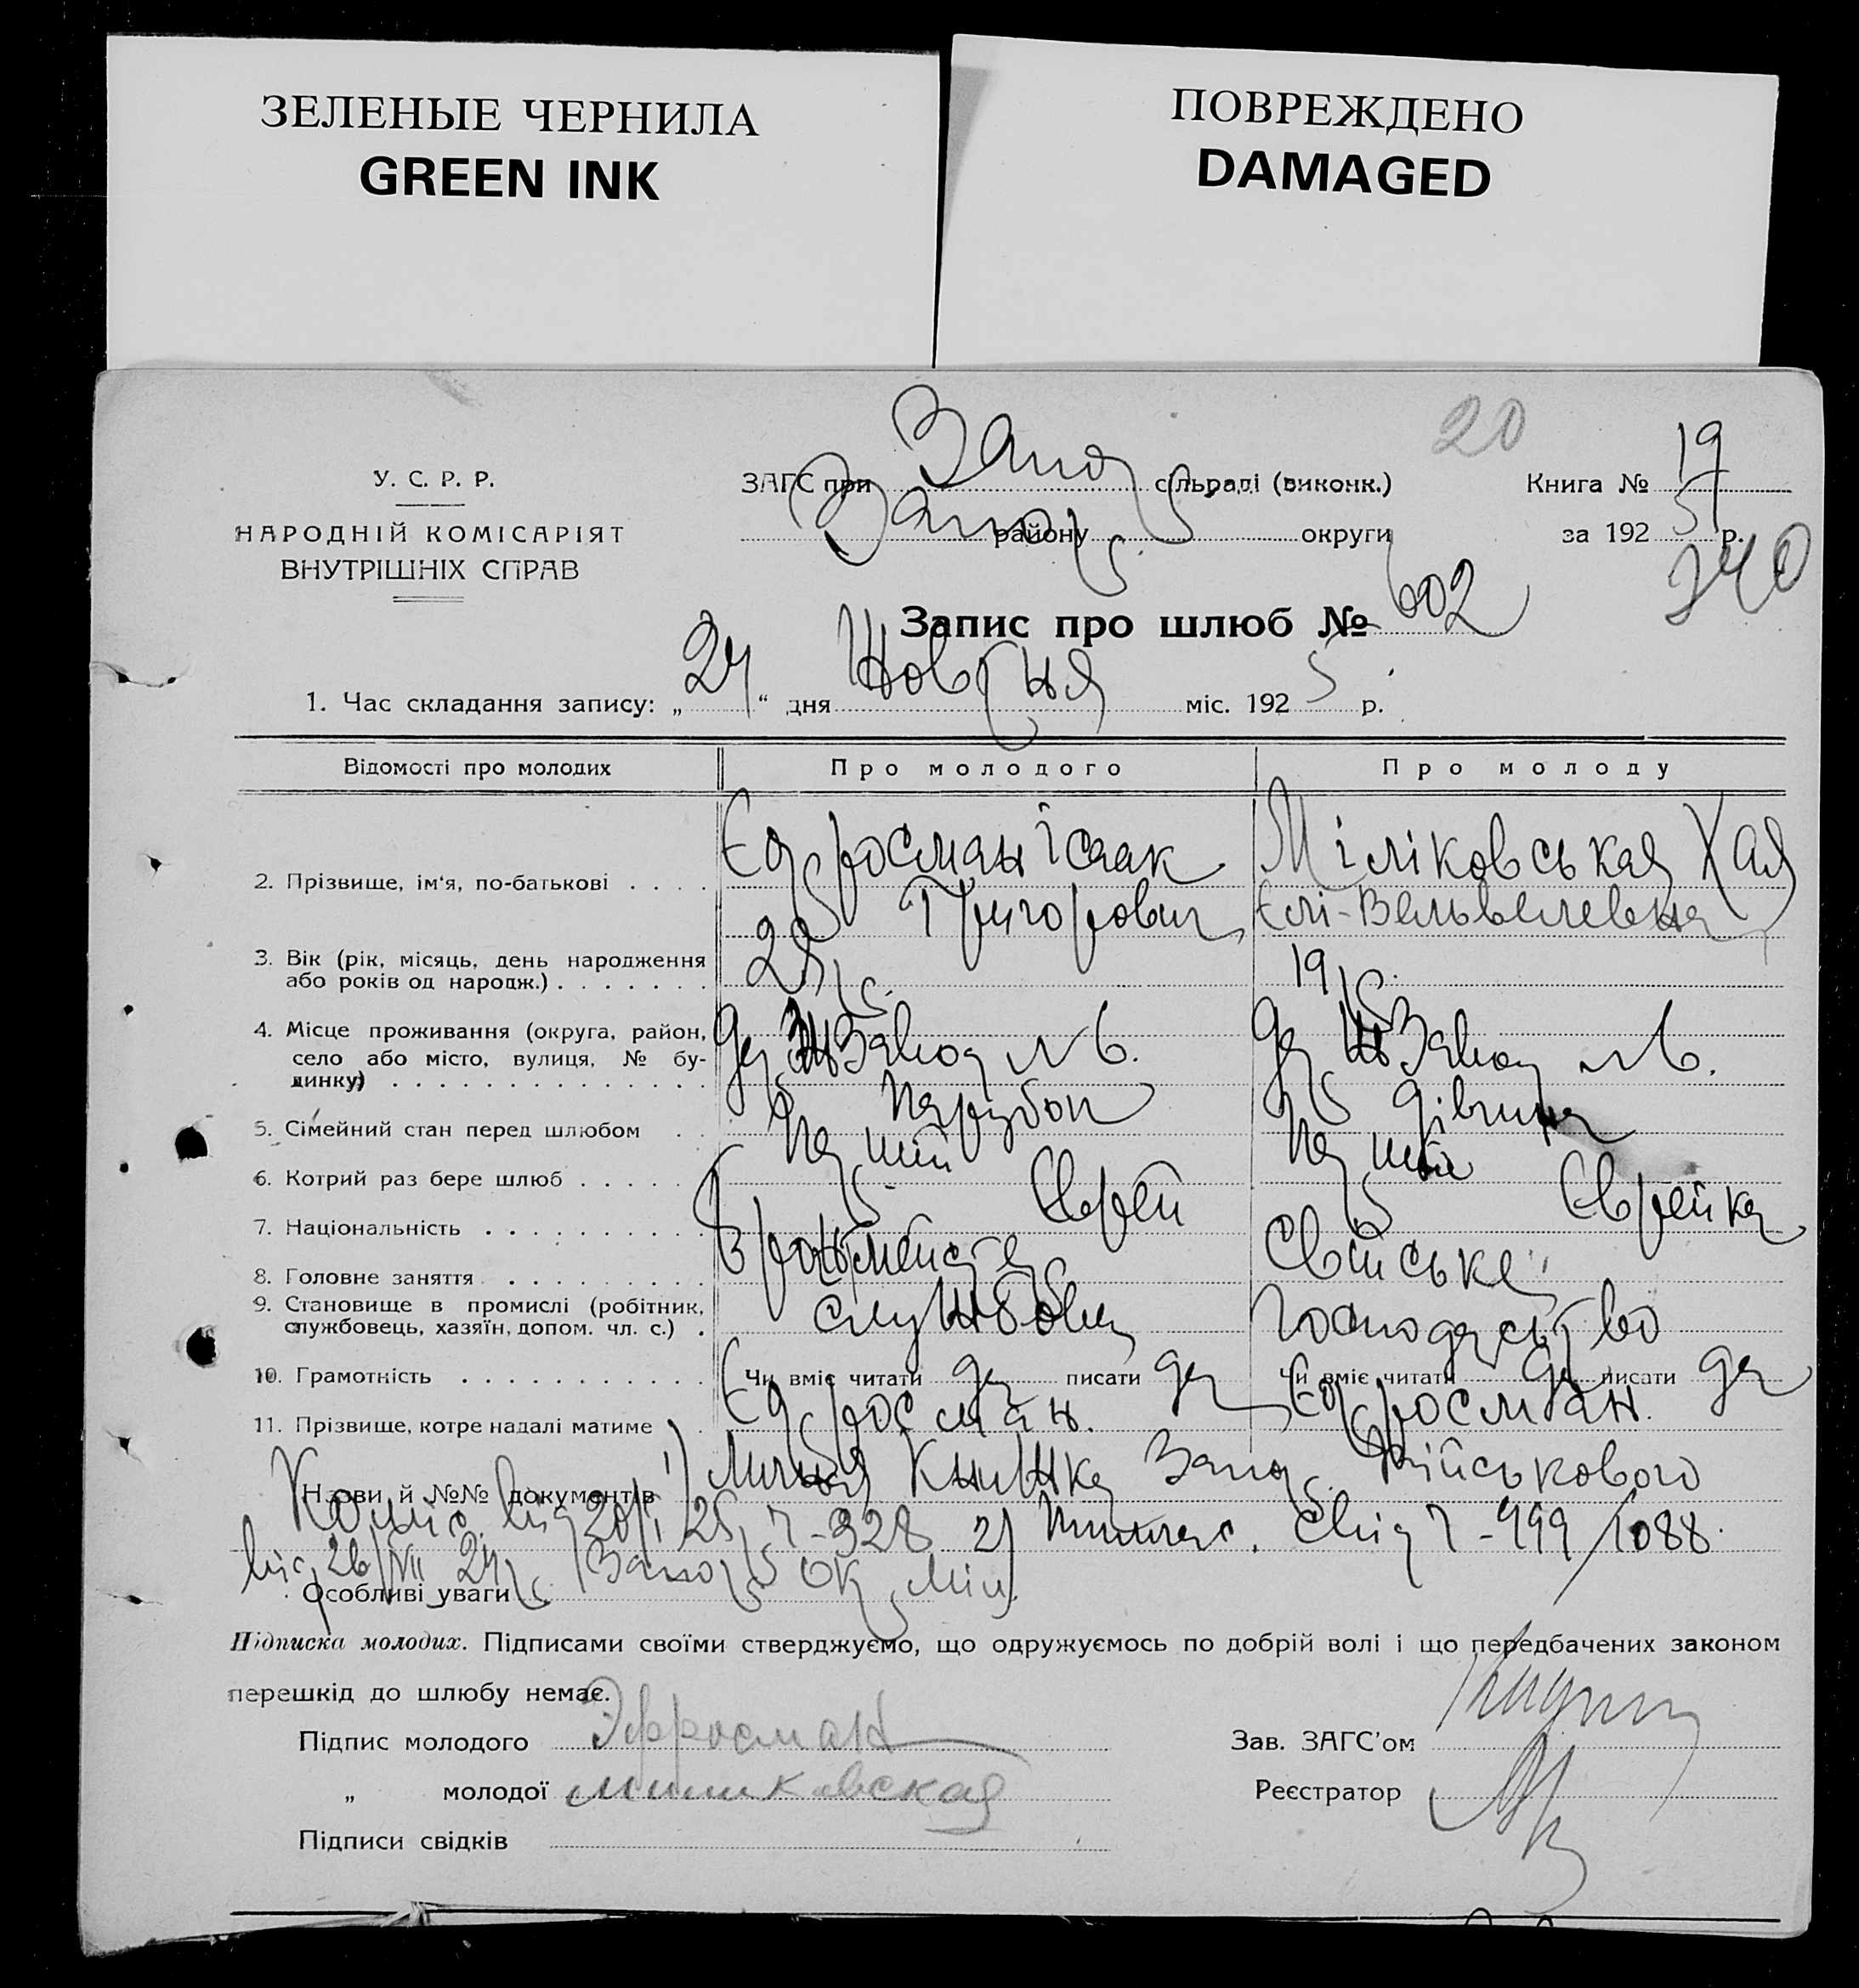 ЗЕЛЕНЫЕ ЧЕРНИЛА
GREEN INK
ПОВРЕЖДЕНО
DAMAGED
20
У. С. Р. Р.
НАРОДНІЙ КОМІСАРІЯТ
ВНУТРІШНІХ СПРАВ
ЗАГС при Запор сільраді (виконк.)
Запор району округи
Книга № 19
за 192 5 р.
240
Запис про шлюб № 602
1. Час складання запису: „ 24 “ дня Жовтня міс. 192 5 р.
Відомості про молодих Про молодого Про молоду
2. Прізвище, ім'я, по-батькові . . . . Ефросман Ісаак Міліковськая Хая
Григорович Елі-Вельвелевна
3. Вік (рік, місяць, день народження
або років од народж.) . . . . . . . 19 р.
4. Місце проживання (округа, район,
село або місто, вулиця, № бу-
динку) . . . . . . . . . . . . . . Завод № 6. Завод № 6.
5. Сімейний стан перед шлюбом . . Парубок Дівчина
6. Котрий раз бере шлюб . . . . . Перший Перший
7. Національність . . . . . . . . . . Єврей Єврейка
8. Головне заняття . . . . . . . . . Свійське
9. Становище в промислі (робітник,
службовець, хазяїн, допом. чл. с.) . службовець господарство
10. Грамотність . . . . . . . . . . . Чи вміє читати да писати да Чи вміє читати да писати да
11. Прізвище, котре надалі матиме . Ефросман. Ефросман.
Назви й №№ документів 1) Книжка Запор. Військового
Коміс. від 20/I 25 р. 2) Свід 999/1088.
від 24 р. Запор Ок
Особливі уваги
Підписка молодих. Підписами своїми стверджуємо, що одружуємось по добрій волі і що передбачених законом
перешкід до шлюбу немає.
Підпис молодого Эфросман
„ молодої Миликовская
Підписи свідків
Зав. ЗАГС'ом
Реєстратор